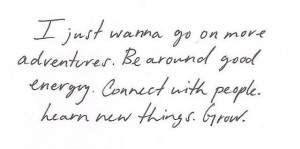 I just wanna go on more
adventures. Be around good
energy. Connect with people.
Learn new things. Grow.